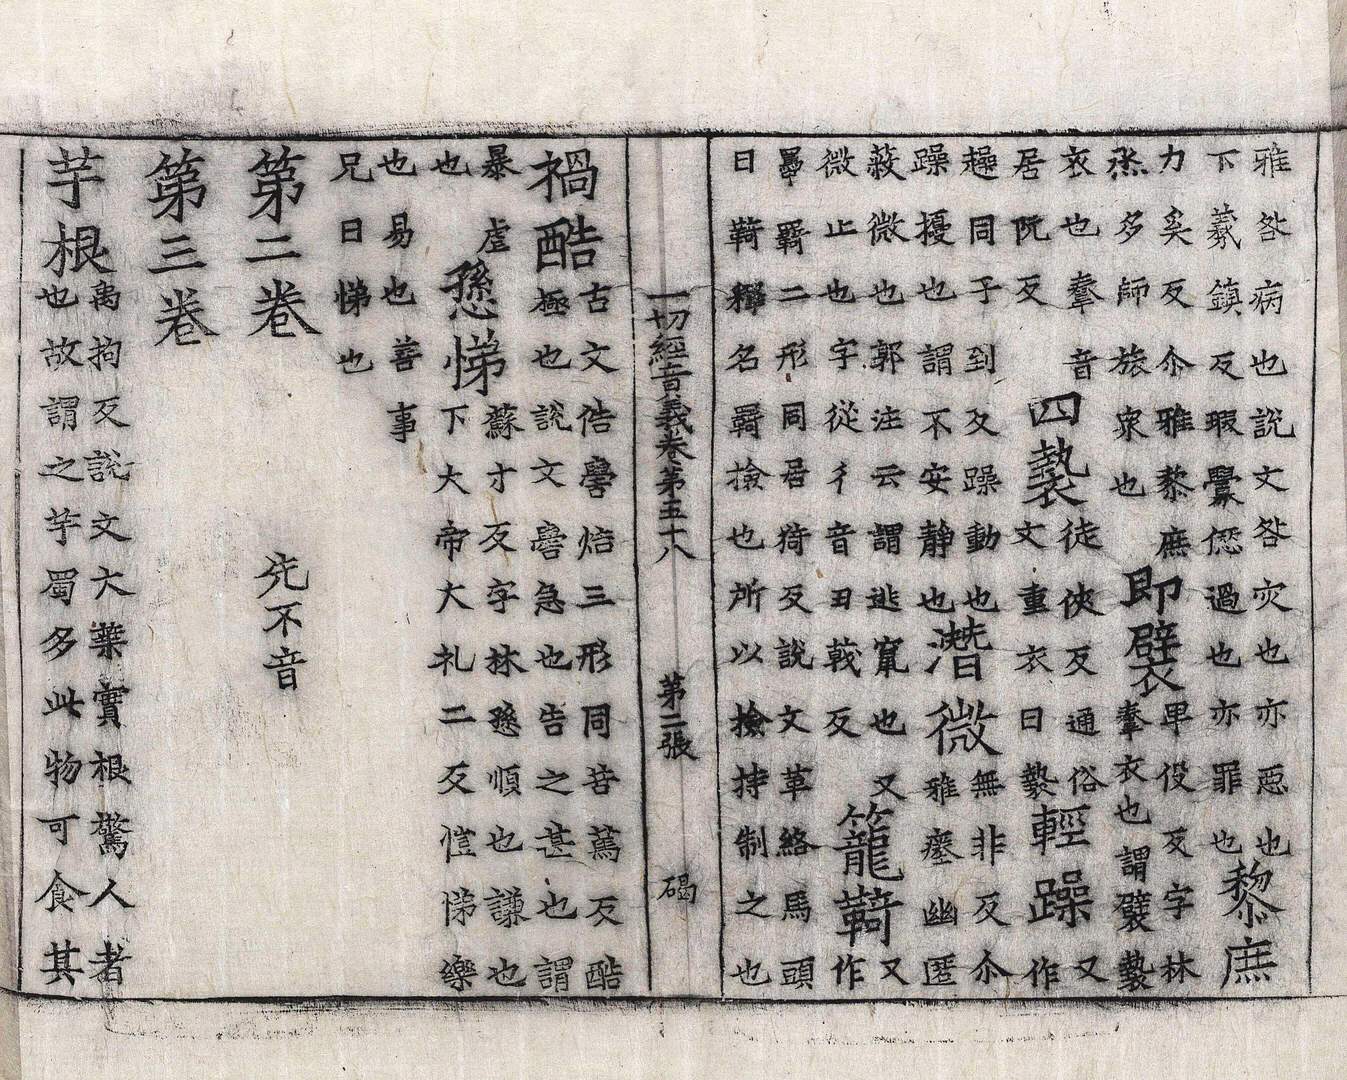 雅咎病也說文咎灾也亦惡也
下羛鎮反瑕釁𠎝過也亦罪也
黎庶
力奚反尒雅黎庶
烝多師旅衆也
即襞
卑役反字林
韏衣也謂襞褺
衣也韏音
居阮反
四褺
徒俠反通俗
文重衣曰褺
輕躁
又作
趮同子到反躁動也
躁擾也謂不安静也
潛微
無非反尒
雅瘞幽匿
蔽微也郭注云謂逃竄也
微止也字從彳音丑戟反
籠䩭
又作
羈二形同居猗反說文革絡馬頭
曰䩭釋名羇撿也所以撿持制之也
一切經音義卷第五十八 第二張 碣
禍酷
古文俈嚳焅三形同苦篤反酷
極也說文嚳急也告之甚也謂
暴虐
也
愻悌
蘇寸反字林愻順也謙也
下大帝大礼二反愷悌樂
也易也善事
兄曰悌也
第二卷 先不音
第三卷
芋根
禹拘反說文大葉實根驚人者
也故謂之芋蜀多此物可食其